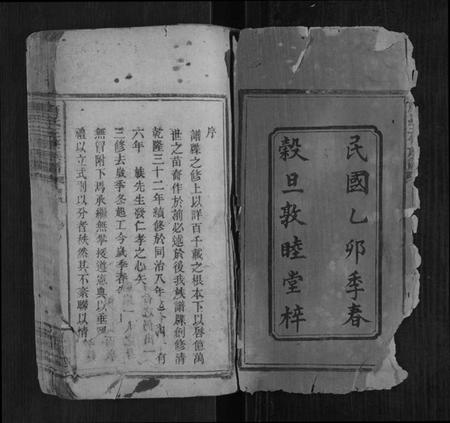 民國乙卯季春
穀旦敦睦堂梓
序
譜牒之修上以詳百千載之根本下以啓億萬
世之苗裔作於前必述於後我族譜牒創修清
乾隆三十二年續修於同治八年 有
六年 族先生發仁孝之心矢
三修去歲季冬起工今歲季春
無冒附下馬承繼無攀援遵憲典以垂
禮以立式 以分者殊然其不紊聯以情